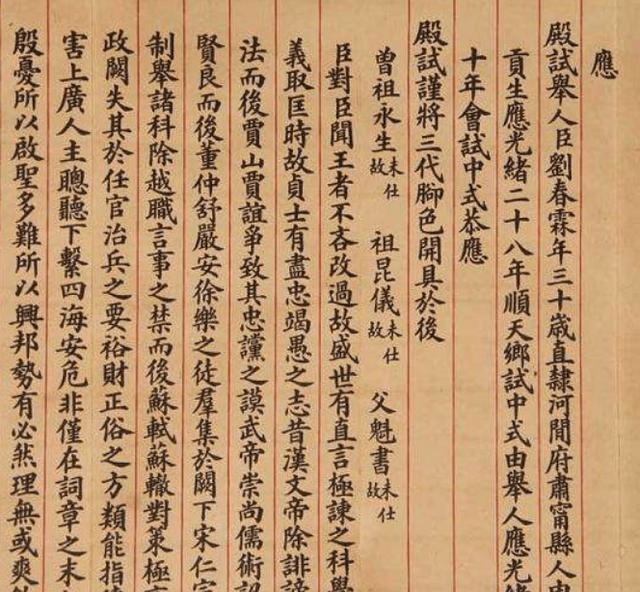 應
殿試舉人臣劉春霖年三十歲直隸河間府肅甯縣人由
貢生應光緒二十八年順天鄉試中式由舉人應光緒
十年會試中式恭應
殿試謹將三代腳色開具於後
曾祖永生未仕故 祖昆儀未仕故 父魁書未仕故
臣對臣聞王者不吝改過故盛世有直言極諫之科
義取匡時故貞士有盡忠竭愚之志昔漢文帝除誹
法而後賈山賈誼爭致其忠讜之謨武帝崇尚儒術
賢良而後董仲舒嚴安徐樂之徒羣集於闕下宋仁
制舉諸科除越職言事之禁而後蘇軾蘇轍對策極
政闕失其於任官治兵之要裕財正俗之方類能指
害上廣人主聰聽下繫四海安危非僅在詞章之末
殷憂所以啟聖多難所以興邦勢有必然理無或爽